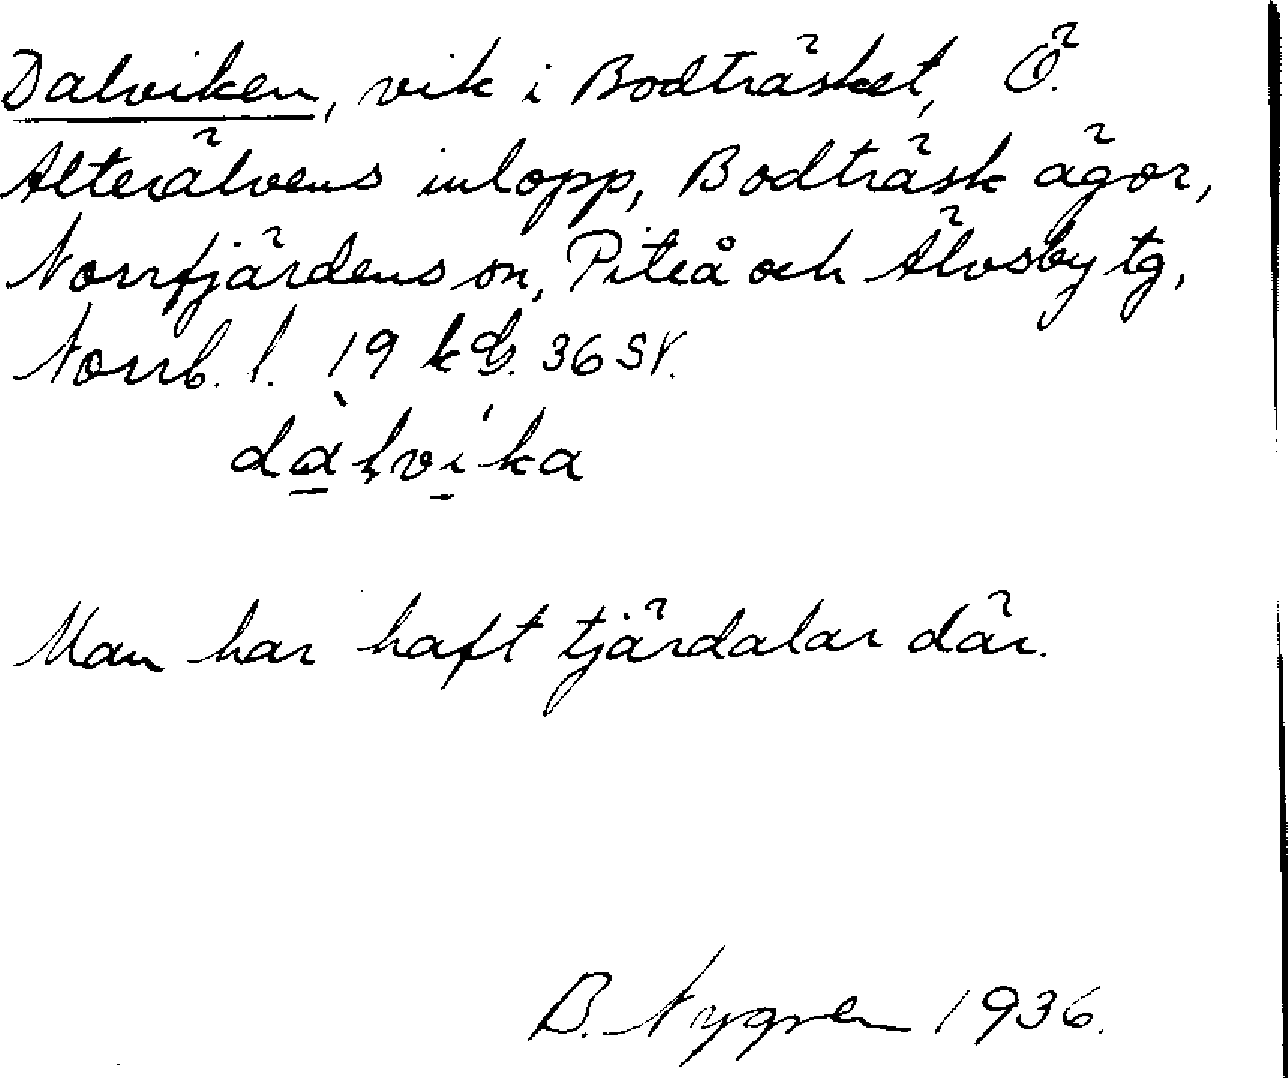 Dalviken, vik i Bodträsket, Ö.
Alterälvens inlopp, Bodträsk ägor,
Norrfjärdens sn, Piteå och Älvsby tg,
Norrb. l. 19 kbl. 36 SV.
dàlvi'ka
Man har haft tjärdalar där.
B. Nygren 1936.